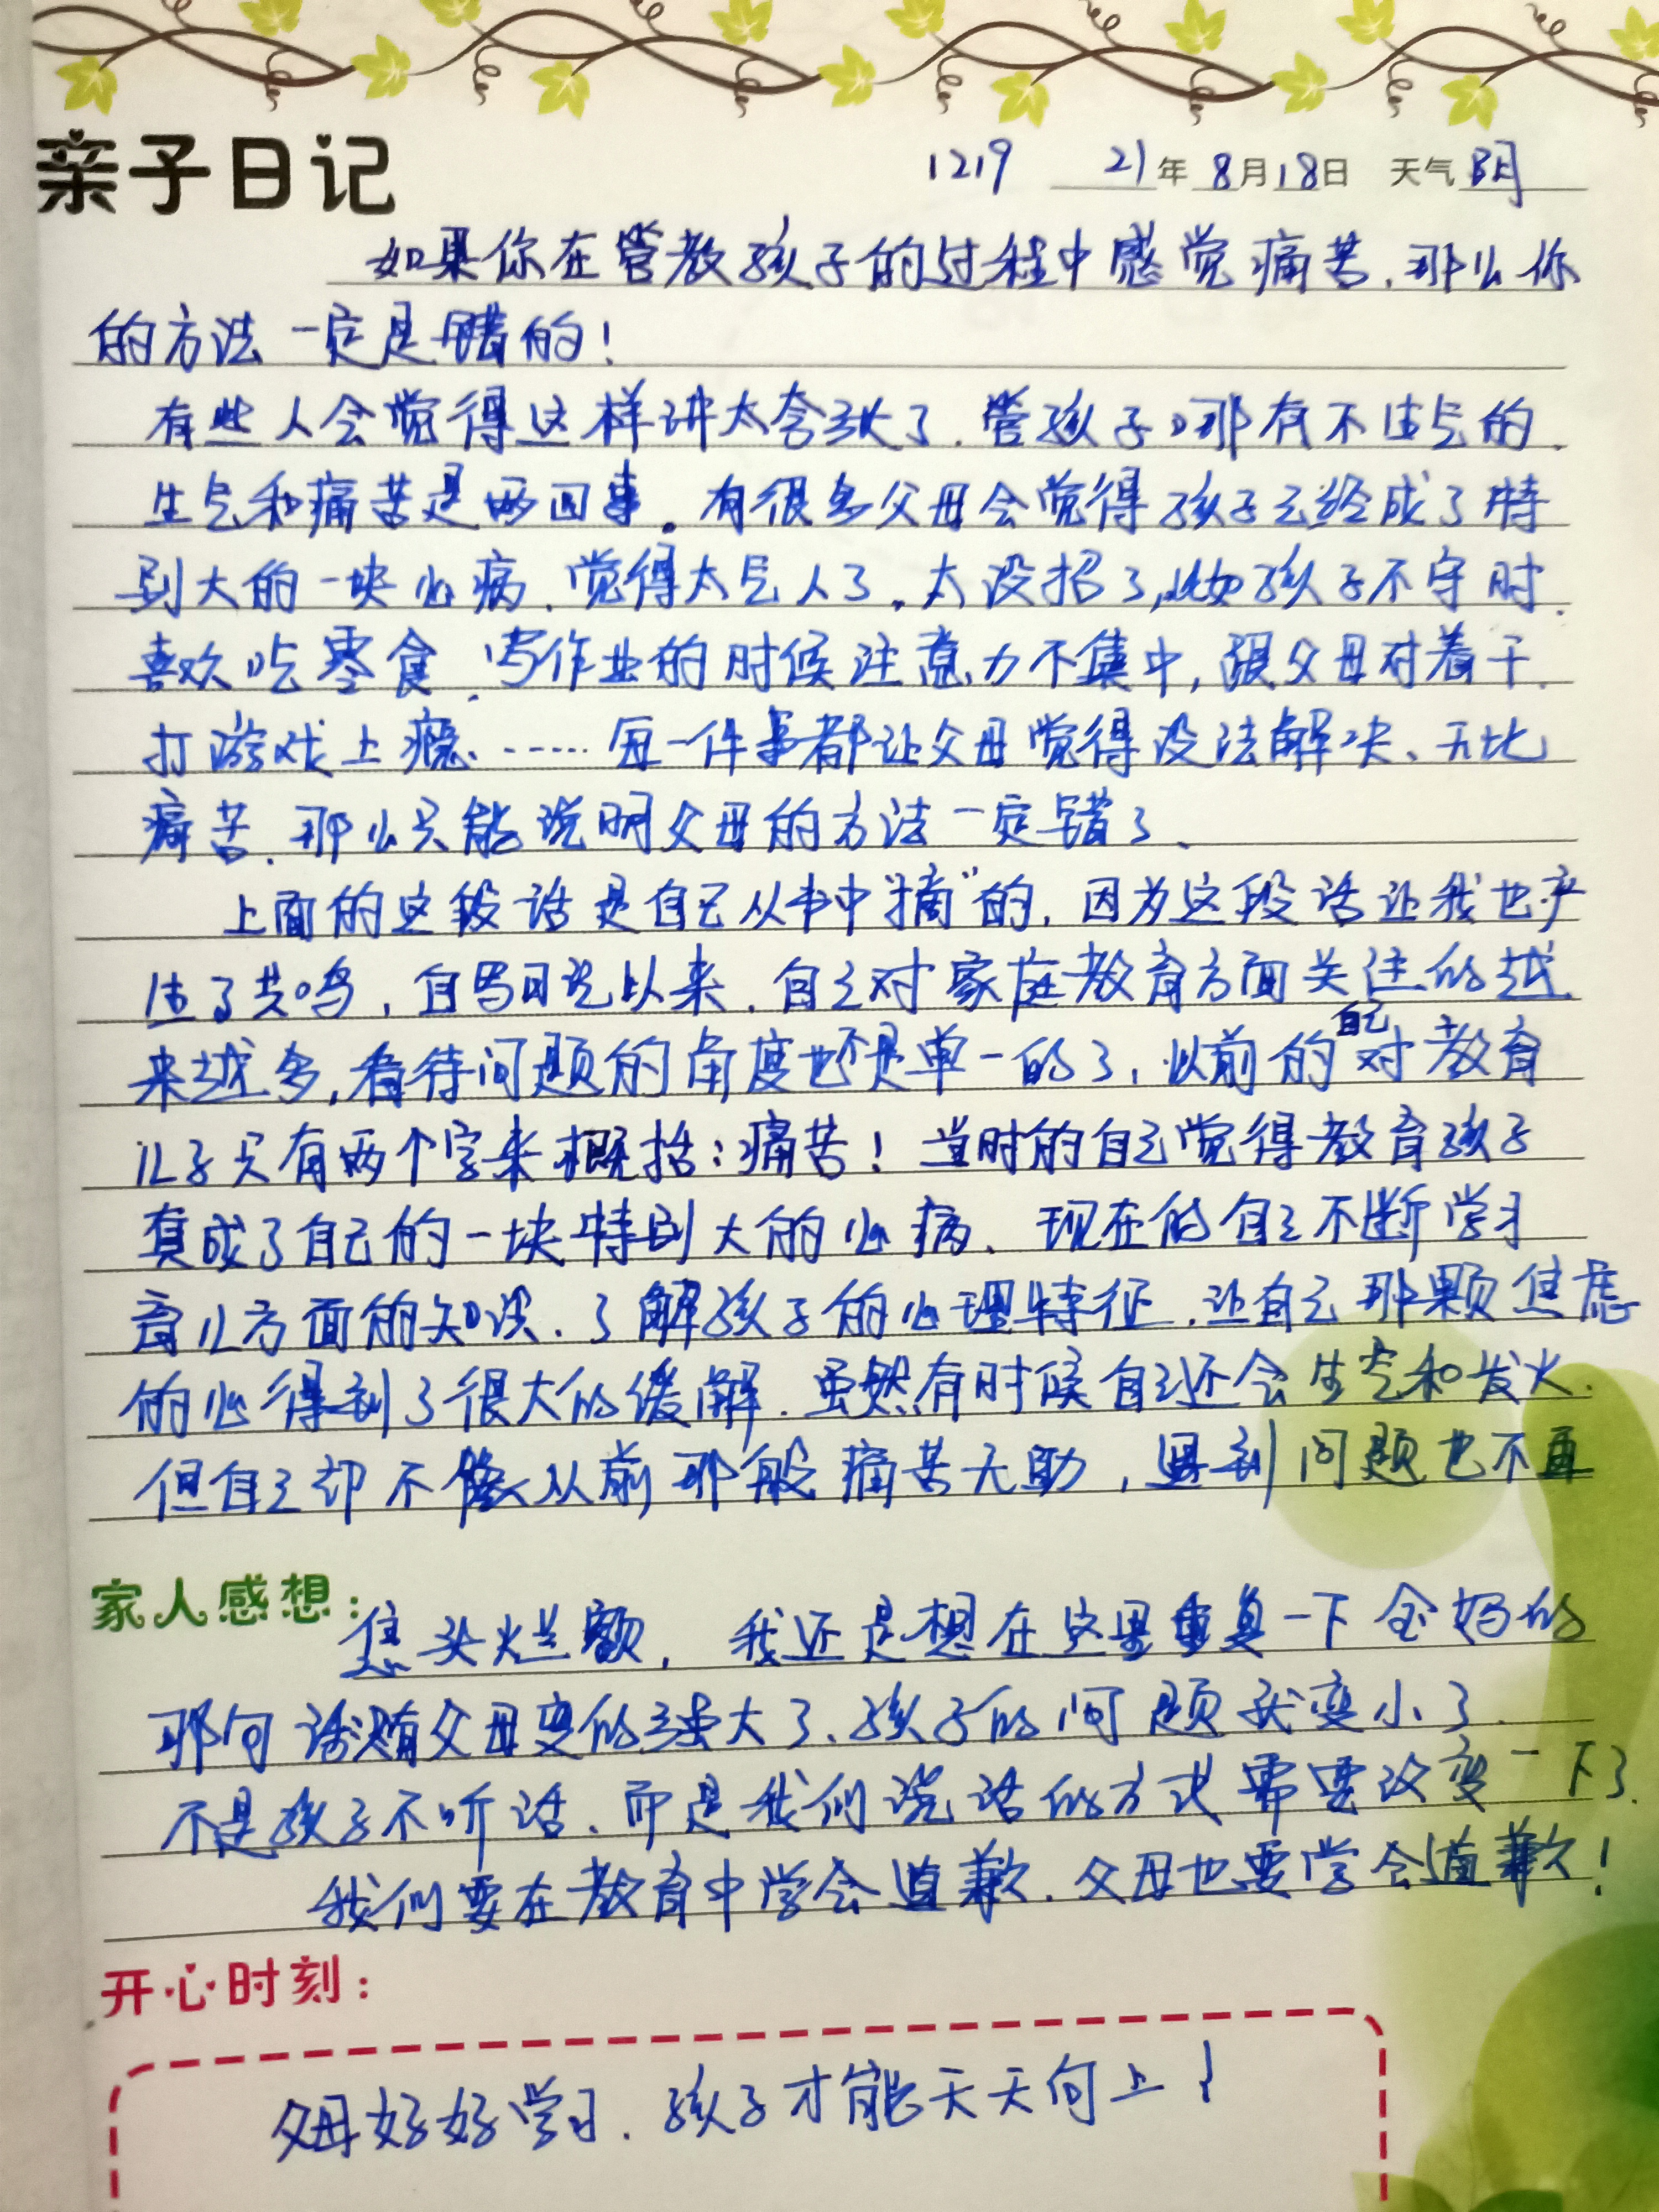 亲子日记 1219 21年8月18日 天气 阴
如果你在管教孩子的过程中感觉痛苦,那么你
的方法一定是错的!
有些人会觉得这样讲太夸张了,管孩子哪有不生气的,
生气和痛苦是两回事。有很多父母会觉得孩子已经成了特
别大的一块心病,觉得太气人了,太没招了,比如孩子不守时,
喜欢吃零食,写作业的时候注意力不集中,跟父母对着干,
打游戏上瘾、……每一件事都让父母觉得没法解决、无比
痛苦,那么只能说明父母的方法一定错了、
上面的这段话是自己从书中“摘”的,因为这段话让我也产
生了共鸣,自写日记以来,自己对家庭教育方面关注的越
来越多,看待问题的角度也不是单一的了,以前的自己对教育
儿子只有两个字来概括:痛苦!当时的自己觉得教育孩子
真成了自己的一块特别大的心病、现在的自己不断学习
育儿方面的知识、了解孩子的心理特征,让自己那颗焦虑
的心得到了很大的缓解,虽然有时候自己还会生气和发火,
但自己却不像从前那般痛苦无助,遇到问题也不再
家人感想:
焦头烂额,我还是想在这里重复一下金妈的
那句话:只有父母变的强大了、孩子的问题就变小了,
不是孩子不听话、而是我们说话的方式需要改变一下了.
我们要在教育中学会道歉,父母也要学会道歉!
开心时刻:
父母好好学习,孩子才能天天向上!